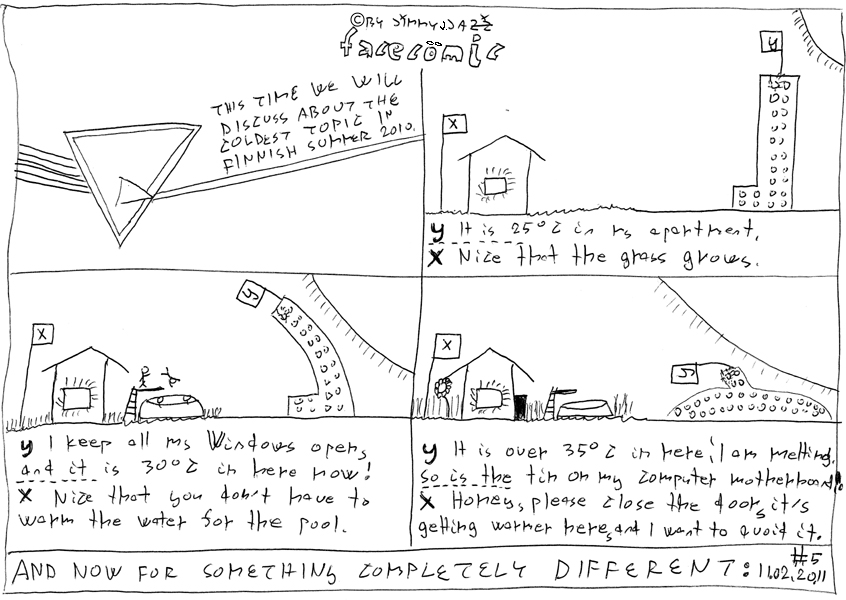 ©BY JIMMYJAZZ
facecomic
THIS TIME WE WILL
DISCUSS ABOUT THE
COLDEST TOPIC IN
FINNISH SUMMER 2010.
y
X
y It is 25°C in my apartment.
X Nice that the grass grows.
X
y
y I keep all my Windows open,
and it is 30°C in here now!
X Nice that you don't have to
warm the water for the pool.
X
y
y It is over 35°C in here, I am melting,
so is the tin on my computer motherboard!
X Honey, please close the door, it's
getting warmer here, and I want to avoid it.
AND NOW FOR SOMETHING COMPLETELY DIFFERENT: #5 11.02.2011